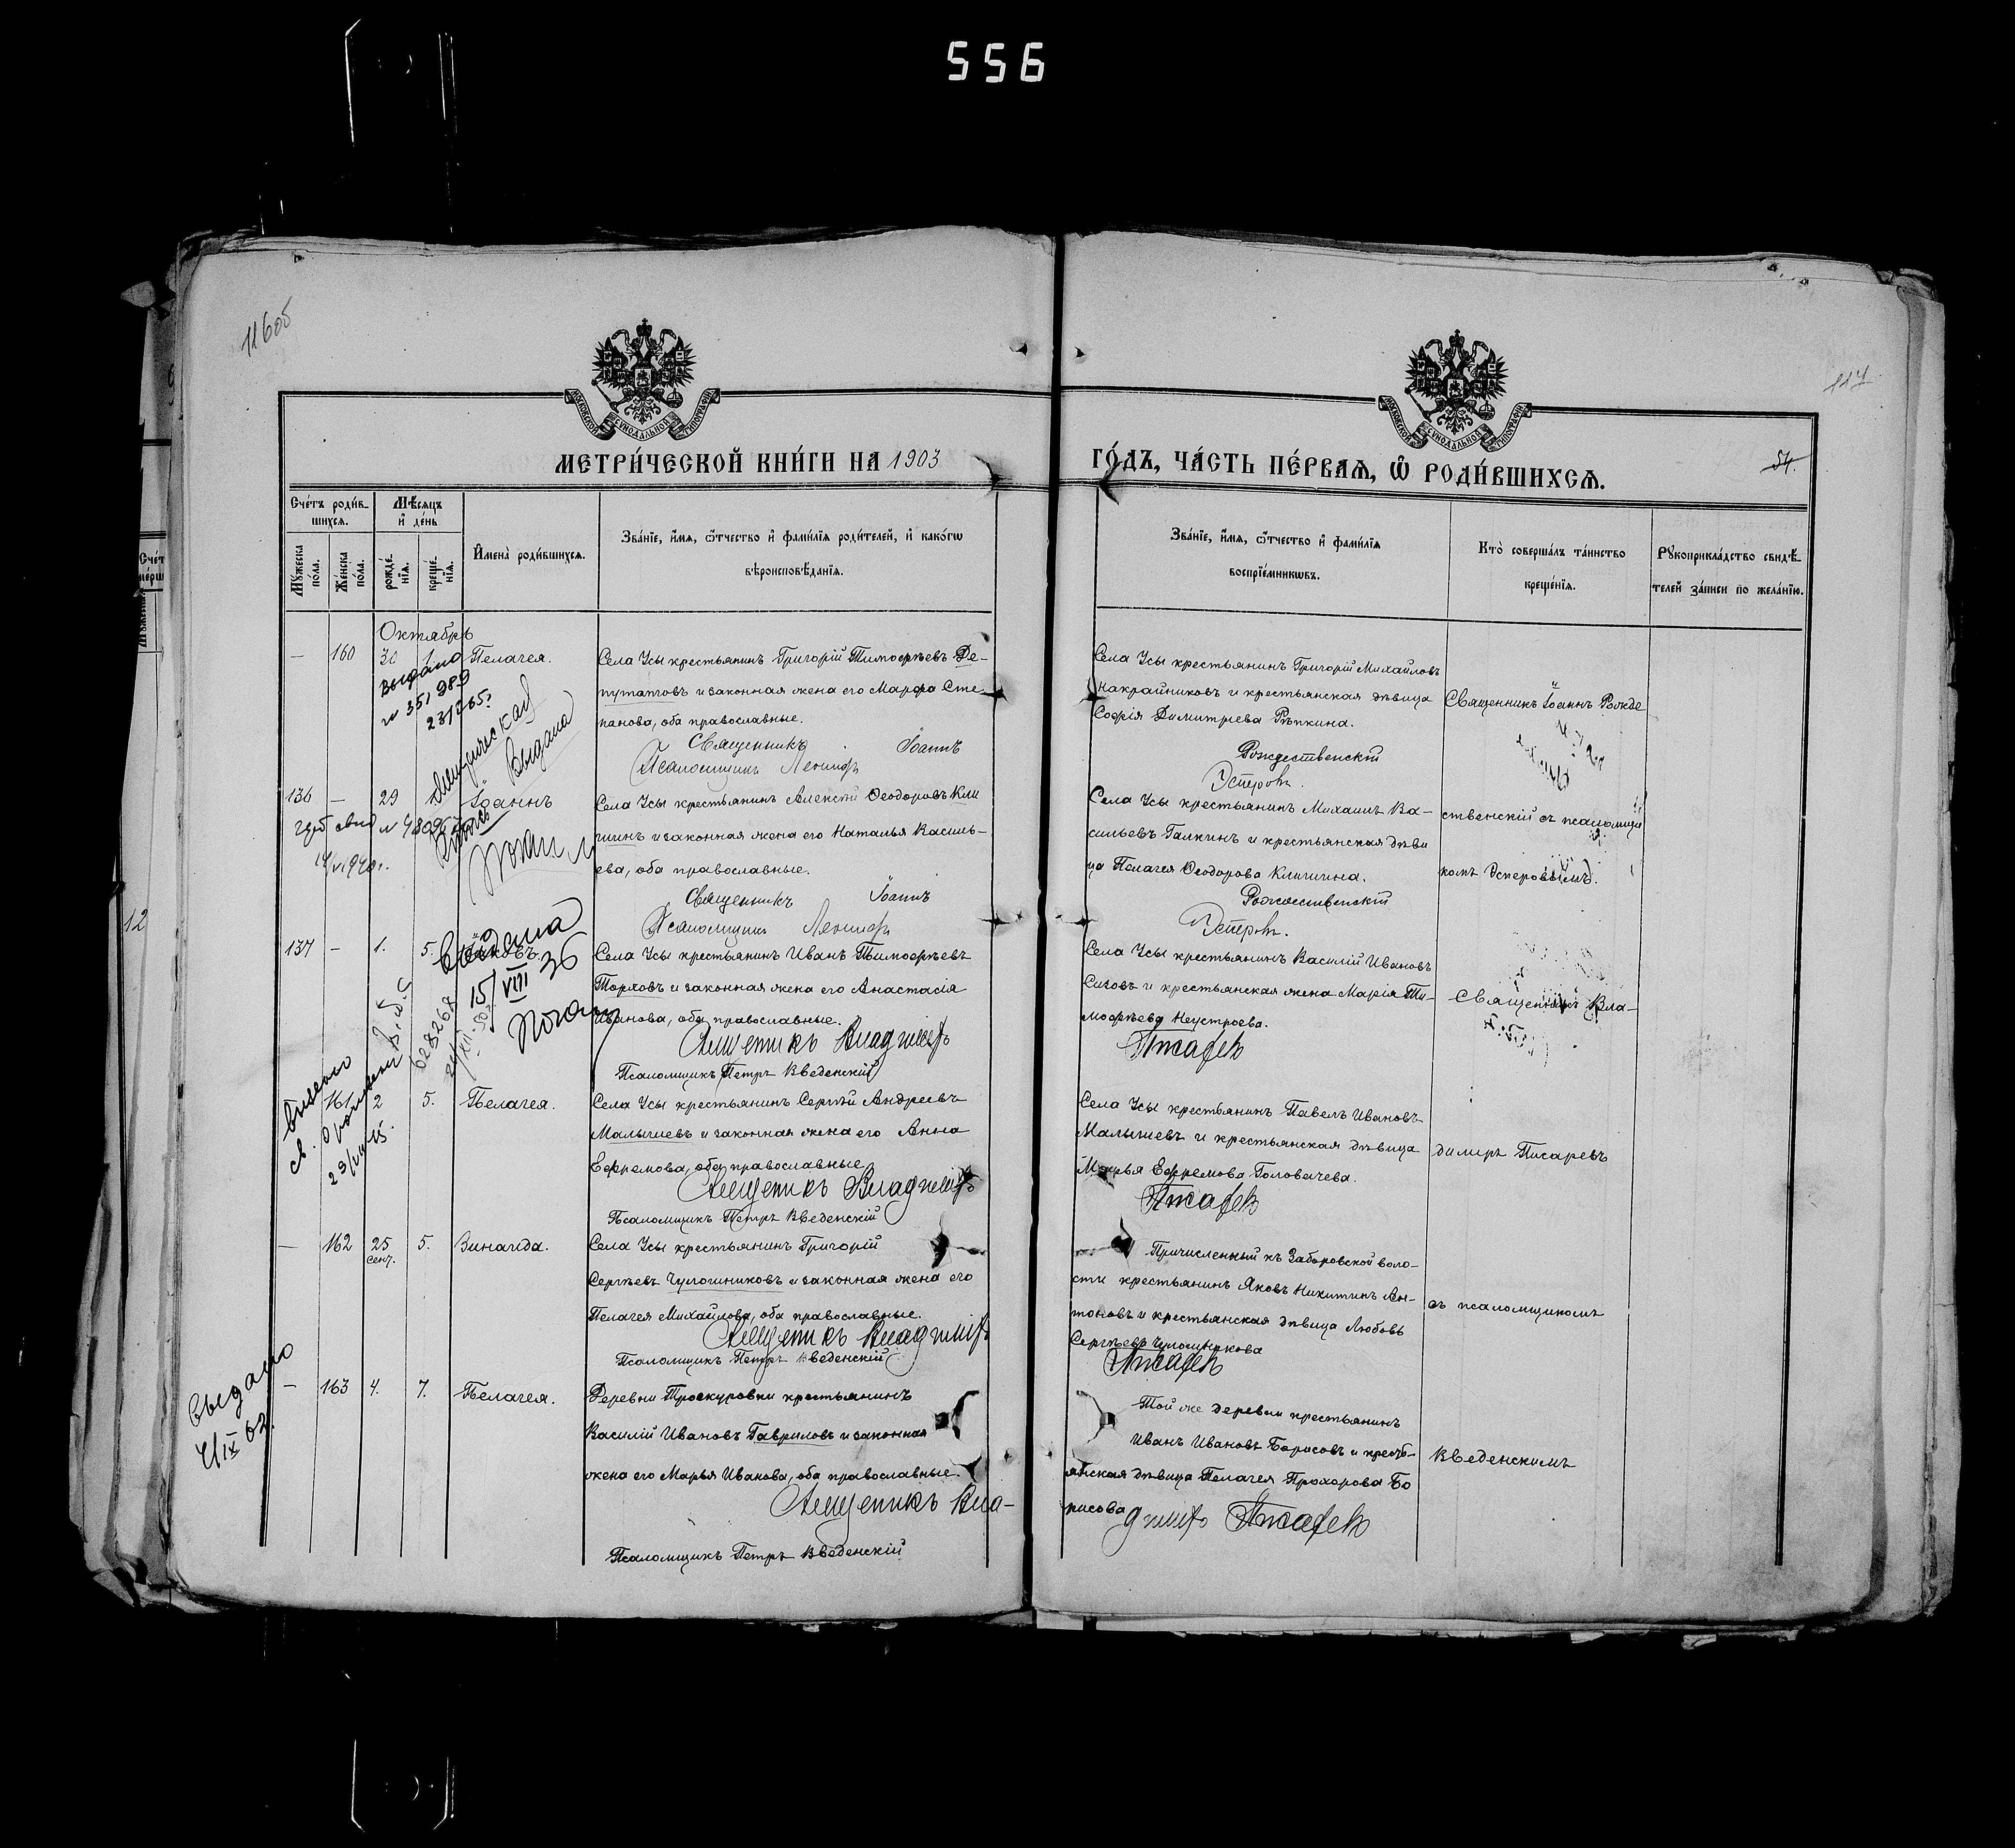 556
116об
117
54.
МОСКОВСКОЙ СѴНОДАЛЬНОЙ ТИПОГРАФІИ
МОСКОВСКОЙ СѴНОДАЛЬНОЙ ТИПОГРАФІИ
МЕТРИ́ЧЕСКОЙ КНИ́ГИ НА 1903
ГО́ДЪ, ЧА́СТЬ ПЕ́РВАѦ, Ѿ РОДИ́ВШИХСѦ.
Сче́тъ роди́в-
шихсѧ.
Мѣ́сѧцъ
и҆ де́нь
Мꙋжеска по́ла.
Же́нска по́ла.
рожде́-
нїѧ.
креще́-
нїѧ.
И҆мена̀ роди́вшихсѧ.
Зва́нїе, и҆́мѧ, ѻ҆́тчество и҆ фами́лїѧ роди́телей, и҆ како́гѡ
вѣроисповѣ́данїѧ.
Зва́нїе, и҆́мѧ, ѻ҆́тчество и҆ фами́лїѧ
воспрїе́мникѡвъ.
Кто̀ соверша́лъ та́инство
креще́нїѧ.
Рꙋкоприкла́дство свидѣ́-
телей за́писи по жела́нїю.
Октябрь
— 160 30 1 Пелагея.
Села Усы крестьянинъ Григорій Тимофѣевъ Де-
путатовъ и законная жена его Марфа Сте-
панова, оба православные.
Священникъ Іоаннъ
Псаломщикъ
Села Усы крестьянинъ Григорій Михайловъ
Накрайниковъ и крестьянская дѣвица
Софія Димитріева Рѣпкина.
Рождественскій
Эсперовъ.
Священникъ Іоаннъ Рожде
Выдано
Метрическая
Выдана
136 — 29 Іоаннъ
Села Усы крестьянинъ Алексѣй Ѳеодоровъ Кли
шинъ и законная жена его Наталья Василь-
ева, оба православные.
Священникъ Іоаннъ
Псаломщикъ
Села Усы крестьянинъ Михаилъ Ва-
сильевъ Галкинъ и крестьянская дѣви
ца Пелагея Ѳеодорова Клишина.
Рождественскій
Эсперовъ.
ственскій съ псаломщи
комъ Эсперовымъ.
137 — 1. 5. Іаковъ.
Села Усы крестьянинъ Иванъ Тимофѣевъ
Торховъ и законная жена его Анастасія
Иванова, оба православные.
Священникъ Владиміръ
Псаломщикъ Петръ Введенскій
Села Усы крестьянинъ Василій Ивановъ
Сизовъ и крестьянская жена Марія Ти-
мофѣева Неустроева.
Писаревъ
Священникъ Вла-
Выдана
15/VIII 36
161 2 5. Пелагея.
Села Усы крестьянинъ Сергѣй Андреевъ
Малышевъ и законная жена его Анна
Ефремова, оба православные
Священникъ Владиміръ
Псаломщикъ Петръ Введенскій
Села Усы крестьянинъ Павелъ Ивановъ
Малышевъ и крестьянская дѣвица
Марья Ефремова Головачева.
Писаревъ
диміръ Писаревъ
— 162 25 сент. 5. Зинаида.
Села Усы крестьянинъ Григорій
Сергѣевъ Чулошниковъ и законная жена его
Пелагея Михайлова, оба православные.
Священникъ Владиміръ
Псаломщикъ Петръ Введенскій
Причисленный къ Заборовской воло-
сти крестьянинъ Яковъ Никитинъ Ан-
тоновъ и крестьянская дѣвица Любовь
Сергѣева Чулошникова
Писаревъ
съ псаломщикомъ
Выдано
4/IX 62.
— 163 4. 7. Пелагея.
Деревни Проскуровки крестьянинъ
Василій Ивановъ Гавриловъ и законная
жена его Марья Иванова, оба православные.
Священникъ Вла-
Псаломщикъ Петръ Введенскій
Той же деревни крестьянинъ
Иванъ Ивановъ Борисовъ и кресть-
янская дѣвица Пелагея Прохорова Бо
рисова
диміръ Писаревъ
Введенскимъ
12